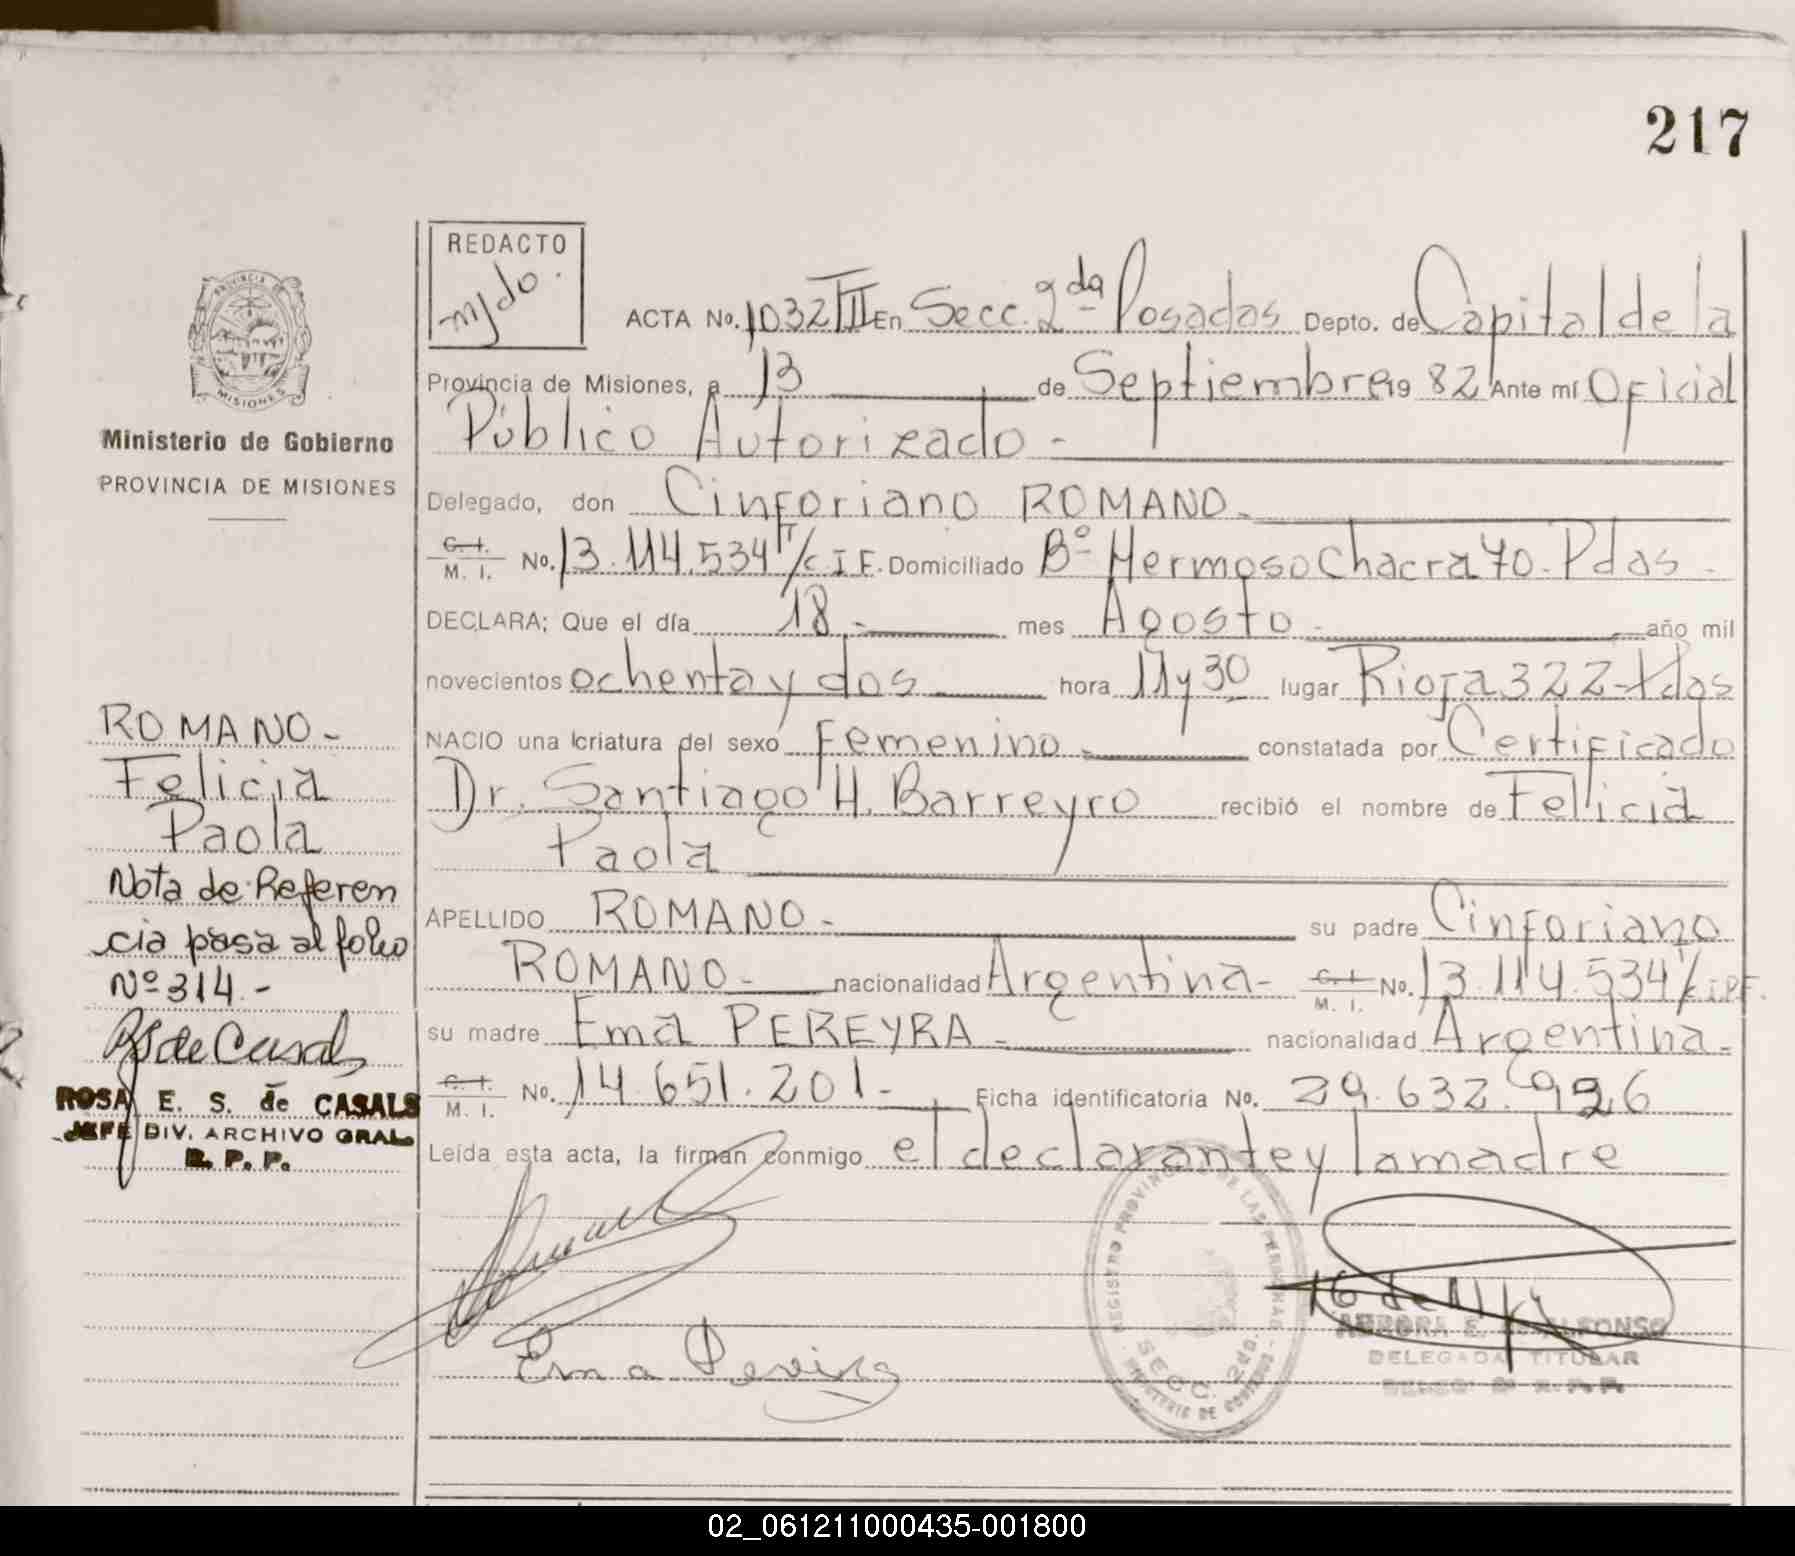 217
REDACTO
mjdo.
ACTA No. 1032 TIII En Secc. 2da Posadas Depto. de Capital de la
PROVINCIA DE
MISIONES
Provincia de Misiones, a 13 de Septiembre 19 82 Ante mí Oficial
Ministerio de Gobierno
Público Autorizado -
PROVINCIA DE MISIONES
Delegado, don Cinforiano ROMANO -
C. I.
M. I. No. 13.114.534 T/C.I.F. Domiciliado Bº Hermoso Chacra 70. Pdas -
DECLARA; Que el día 18 - mes Agosto - año mil
novecientos ochenta y dos hora 11 y 30 lugar Rioja 322 - Pdas
NACIO una criatura del sexo Femenino - constatada por Certificado
Dr. Santiago H. Barreyro recibió el nombre de Felicia
Paola
APELLIDO ROMANO - su padre Cinforiano
ROMANO - nacionalidad Argentina - C. I. M. I. No. 13.114.534
su madre Ema PEREYRA - nacionalidad Argentina -
C. I.
M. I. No. 14.651.201 - Ficha identificatoria No. 29.632.926
Leída esta acta, la firman conmigo el declarante y la madre
ROMANO -
Felicia
Paola
Nota de Referen
cia pasa al folio
Nº 314. -
RS de Casals
ROSA E. S. de CASALS
JEFE DIV. ARCHIVO GRAL.
R. P. P.
Ema Pereira
REGISTRO PROVINCIAL DE LAS PERSONAS
SECC. 2da.
MINISTERIO DE GOBIERNO
AURORA E. ALFONSO
DELEGADA TITULAR
02_061211000435-001800